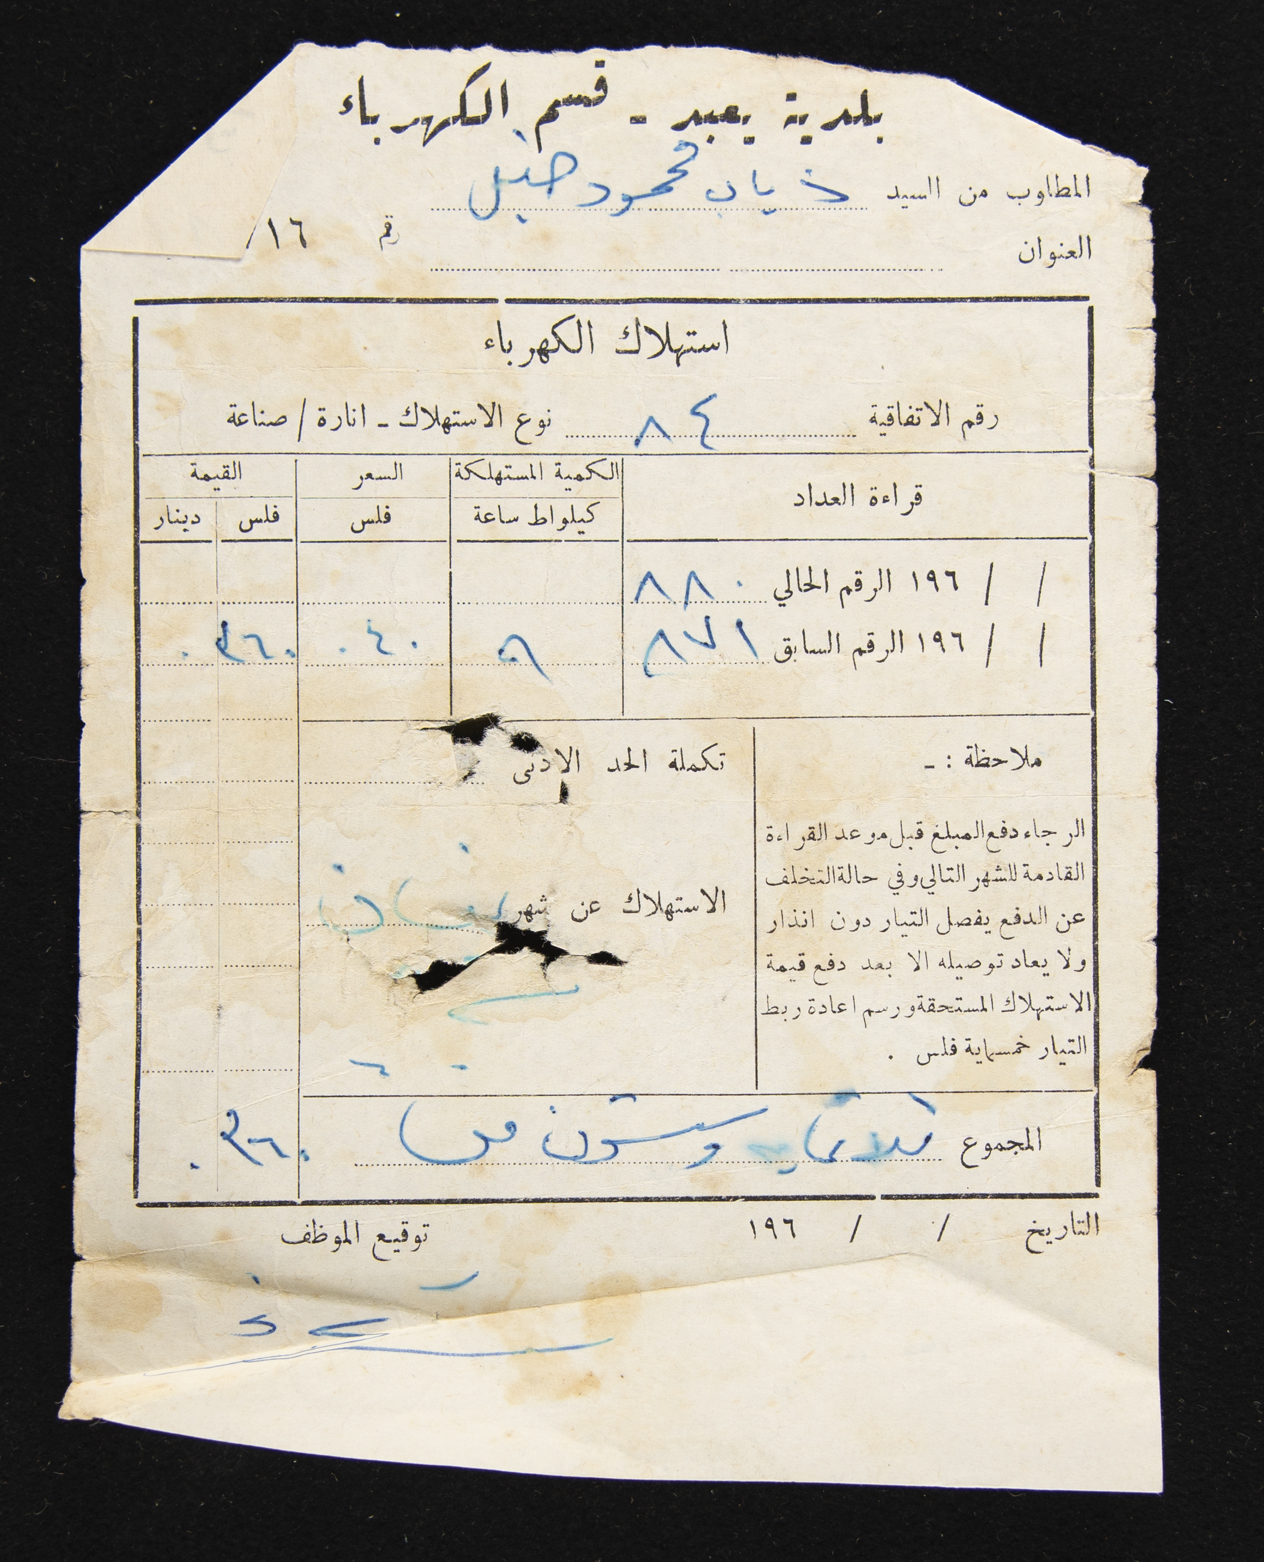 بلدية يعبد - قسم الكهرباء
المطلوب من السيد ذياب محمود
العنوان
رقم ١٦/
استهلاك الكهرباء
رقم الاتفاقية ٨٤ نوع الاستهلاك - انارة / صناعة
قراءة العداد الكمية المستهلكة السعر القيمة
كيلواط ساعة فلس فلس دينار
/ / ١٩٦ الرقم الحالي ٨٨٠
/ / ١٩٦ الرقم السابق ٨٧١ ٩ ٠٤٠ ٣٦٠ ٠
ملاحظة : -
الرجاء دفع المبلغ قبل موعد القراءة
القادمة للشهر التالي وفي حالة التخلف
عن الدفع يفصل التيار دون انذار
ولا يعاد توصيله الا بعد دفع قيمة
الاستهلاك المستحقة ورسم اعادة ربط
التيار خمسماية فلس .
تكملة الحد الادنى
الاستهلاك عن شهر
المجموع ثلاثماية وستون فلسا ٣٦٠ ٠
التاريخ / / ١٩٦ توقيع الموظف